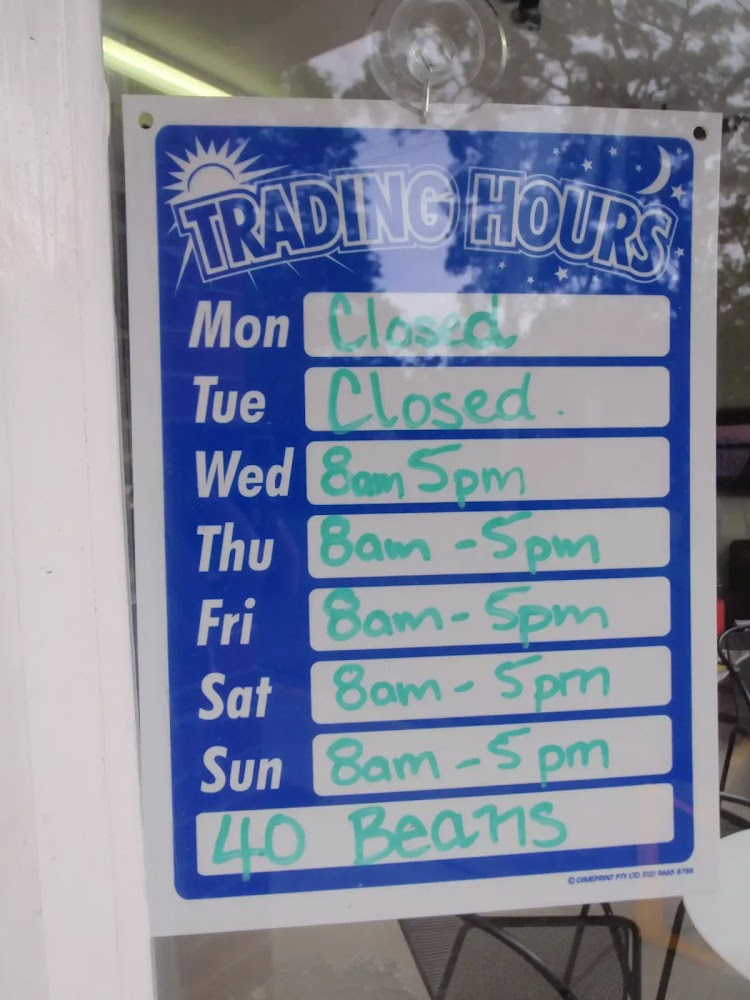 TRADING HOURS
Mon Closed
Tue Closed.
Wed 8am 5pm
Thu 8am - 5pm
Fri 8am - 5pm
Sat 8am - 5pm
Sun 8am - 5pm
40 Beans
© DIMEPRINT PTY LTD (02)